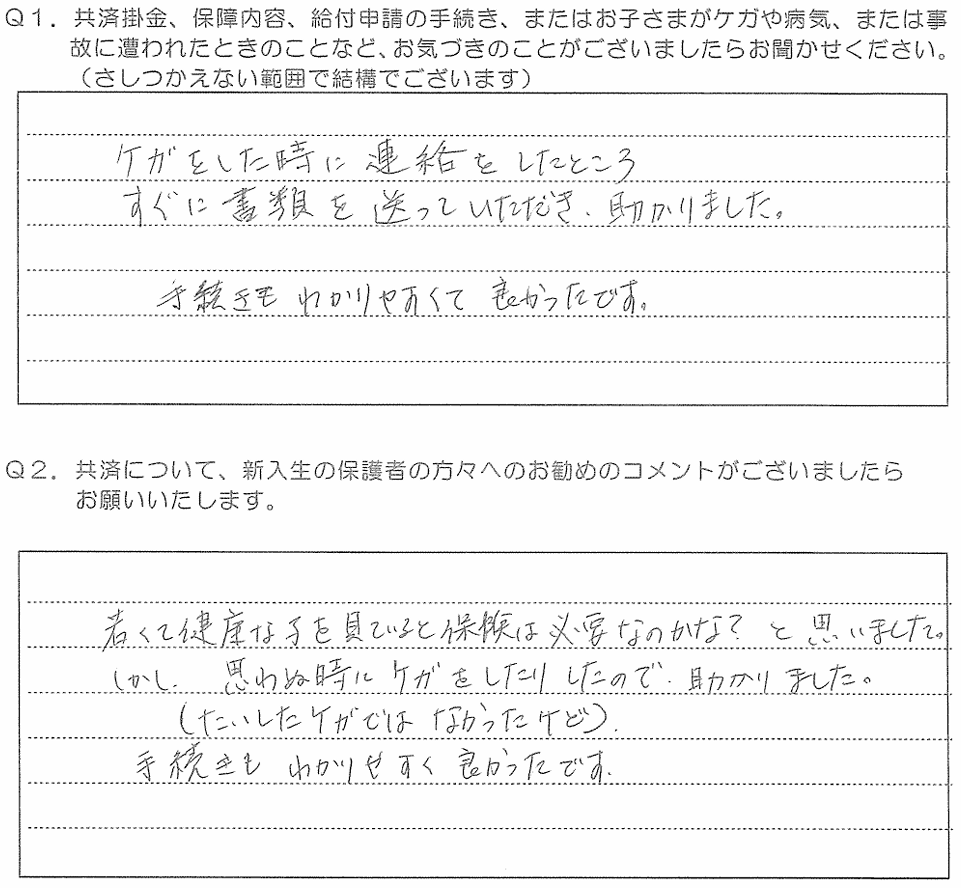 Q1．共済掛金、保障内容、給付申請の手続き、またはお子さまがケガや病気、または事
故に遭われたときのことなど、お気づきのことがございましたらお聞かせください。
（さしつかえない範囲で結構でございます）
ケガをした時に連絡をしたところ
すぐに書類を送っていただき、助かりました。
手続きも わかりやすくて 良かったです。
Q2．共済について、新入生の保護者の方々へのお勧めのコメントがございましたら
お願いいたします。
若くて健康な子を見ていると保険は必要なのかな？と思いました。
しかし、思わぬ時にケガをしたりしたので、助かりました。
（たいしたケガでは なかったけど）.
手続きも わかりやすく 良かったです.